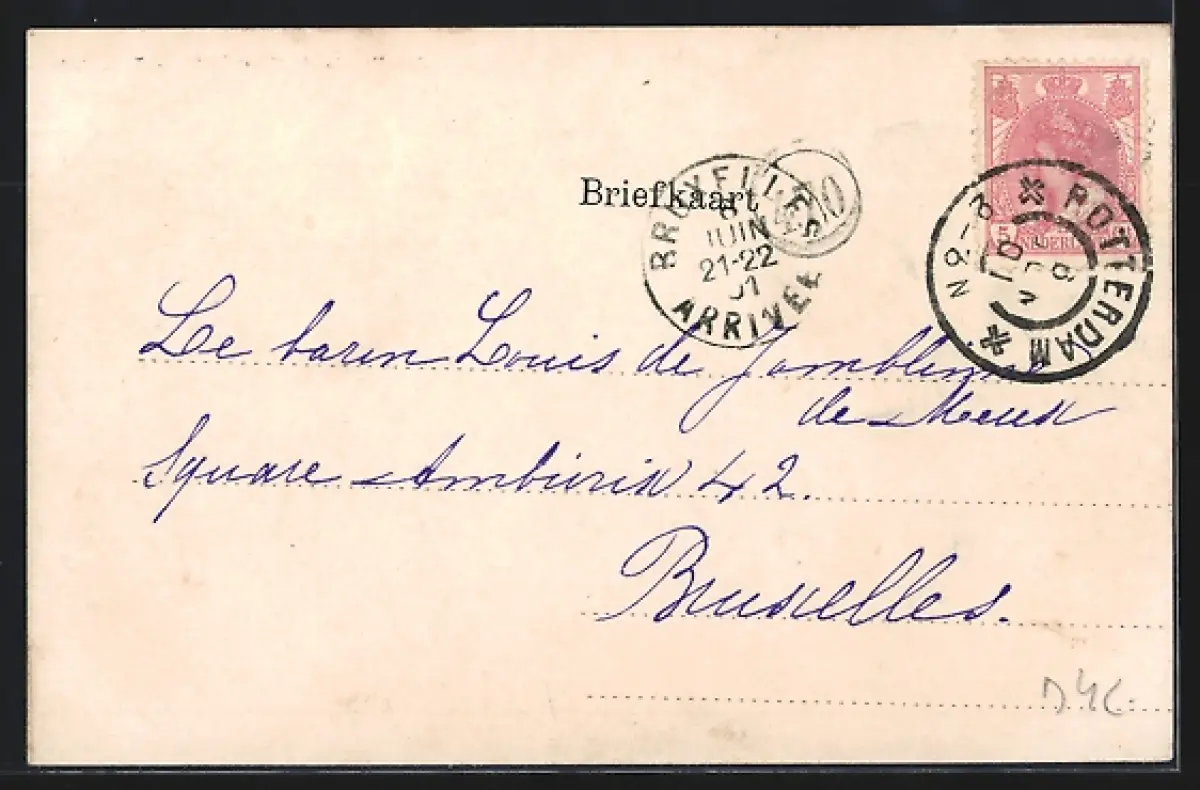 Briefkaart
BRUXELLES
8
JUIN
21-22
01
ARRIVEE
5 NEDERL
ROTTERDAM
N 2-3
Le baron Louis de Jamblinne
de Meux
Square Ambiorix 42.
Bruxelles.